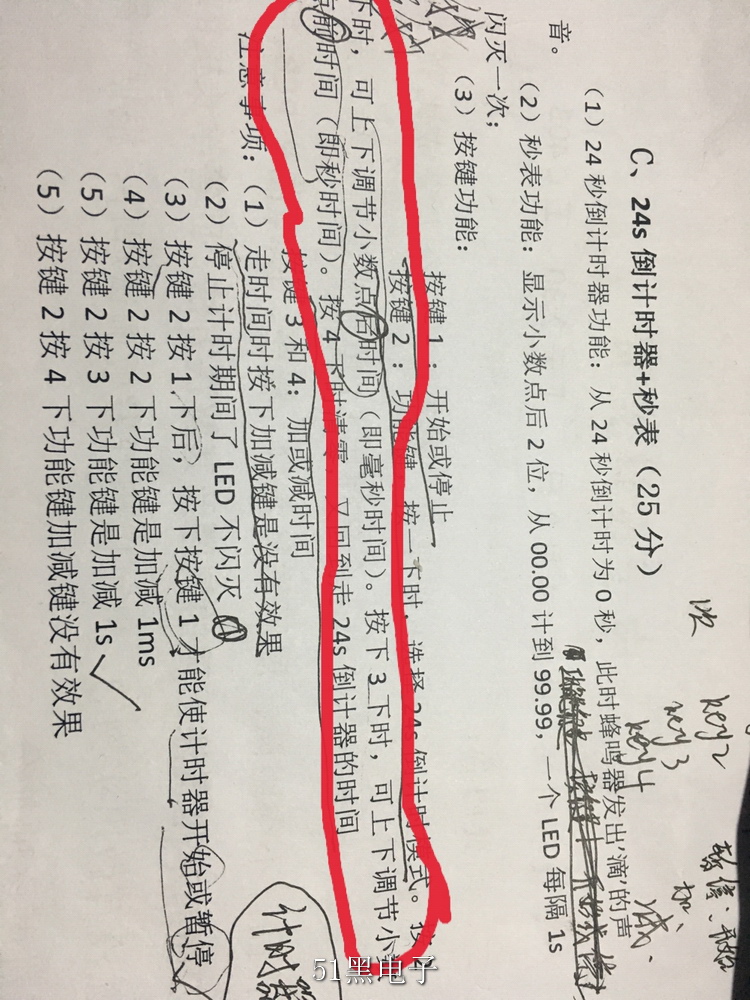 C、24s 倒计时器+秒表（25 分）
（1）24 秒倒计时器功能：从 24 秒倒计时为 0 秒，此时蜂鸣器发出‘滴’的声
音。
（2）秒表功能：显示小数点后 2 位，从 00.00 计到 99.99，一个 LED 每隔 1s
闪灭一次；
（3）按键功能：
按键 1：开始或停止
按键 2：功能键 按一下时，选择 24s 倒计时模式。按 2
下时，可上下调节小数点后时间（即毫秒时间）。按下 3 下时，可上下调节小数
点前时间（即秒时间）。按 4 下时清零，又回到走 24s 倒计器的时间
按键 3 和 4：加或减时间
注意事项：（1）走时间时按下加减键是没有效果
（2）停止计时期间了 LED 不闪灭
（3）按键 2 按 1 下后，按下按键 1 才能使计时器开始或暂停
（4）按键 2 按 2 下功能键是加减 1ms
（5）按键 2 按 3 下功能键是加减 1s
（5）按键 2 按 4 下功能键加减键没有效果
key2
key3
key4
加、
减、
计时器
51黑电子